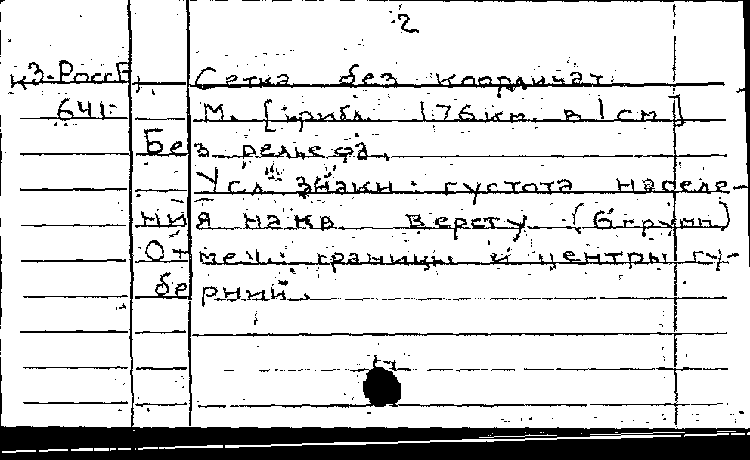 2
к3-РоссЕ, Сетка без координат.
641: М. [прибл. 176 км. в 1 см]
Без рельефа.
Усл. знаки: густота населе-
ния на кв. версту (6 групп)
Отмеч.: границы и центры гу-
берний.